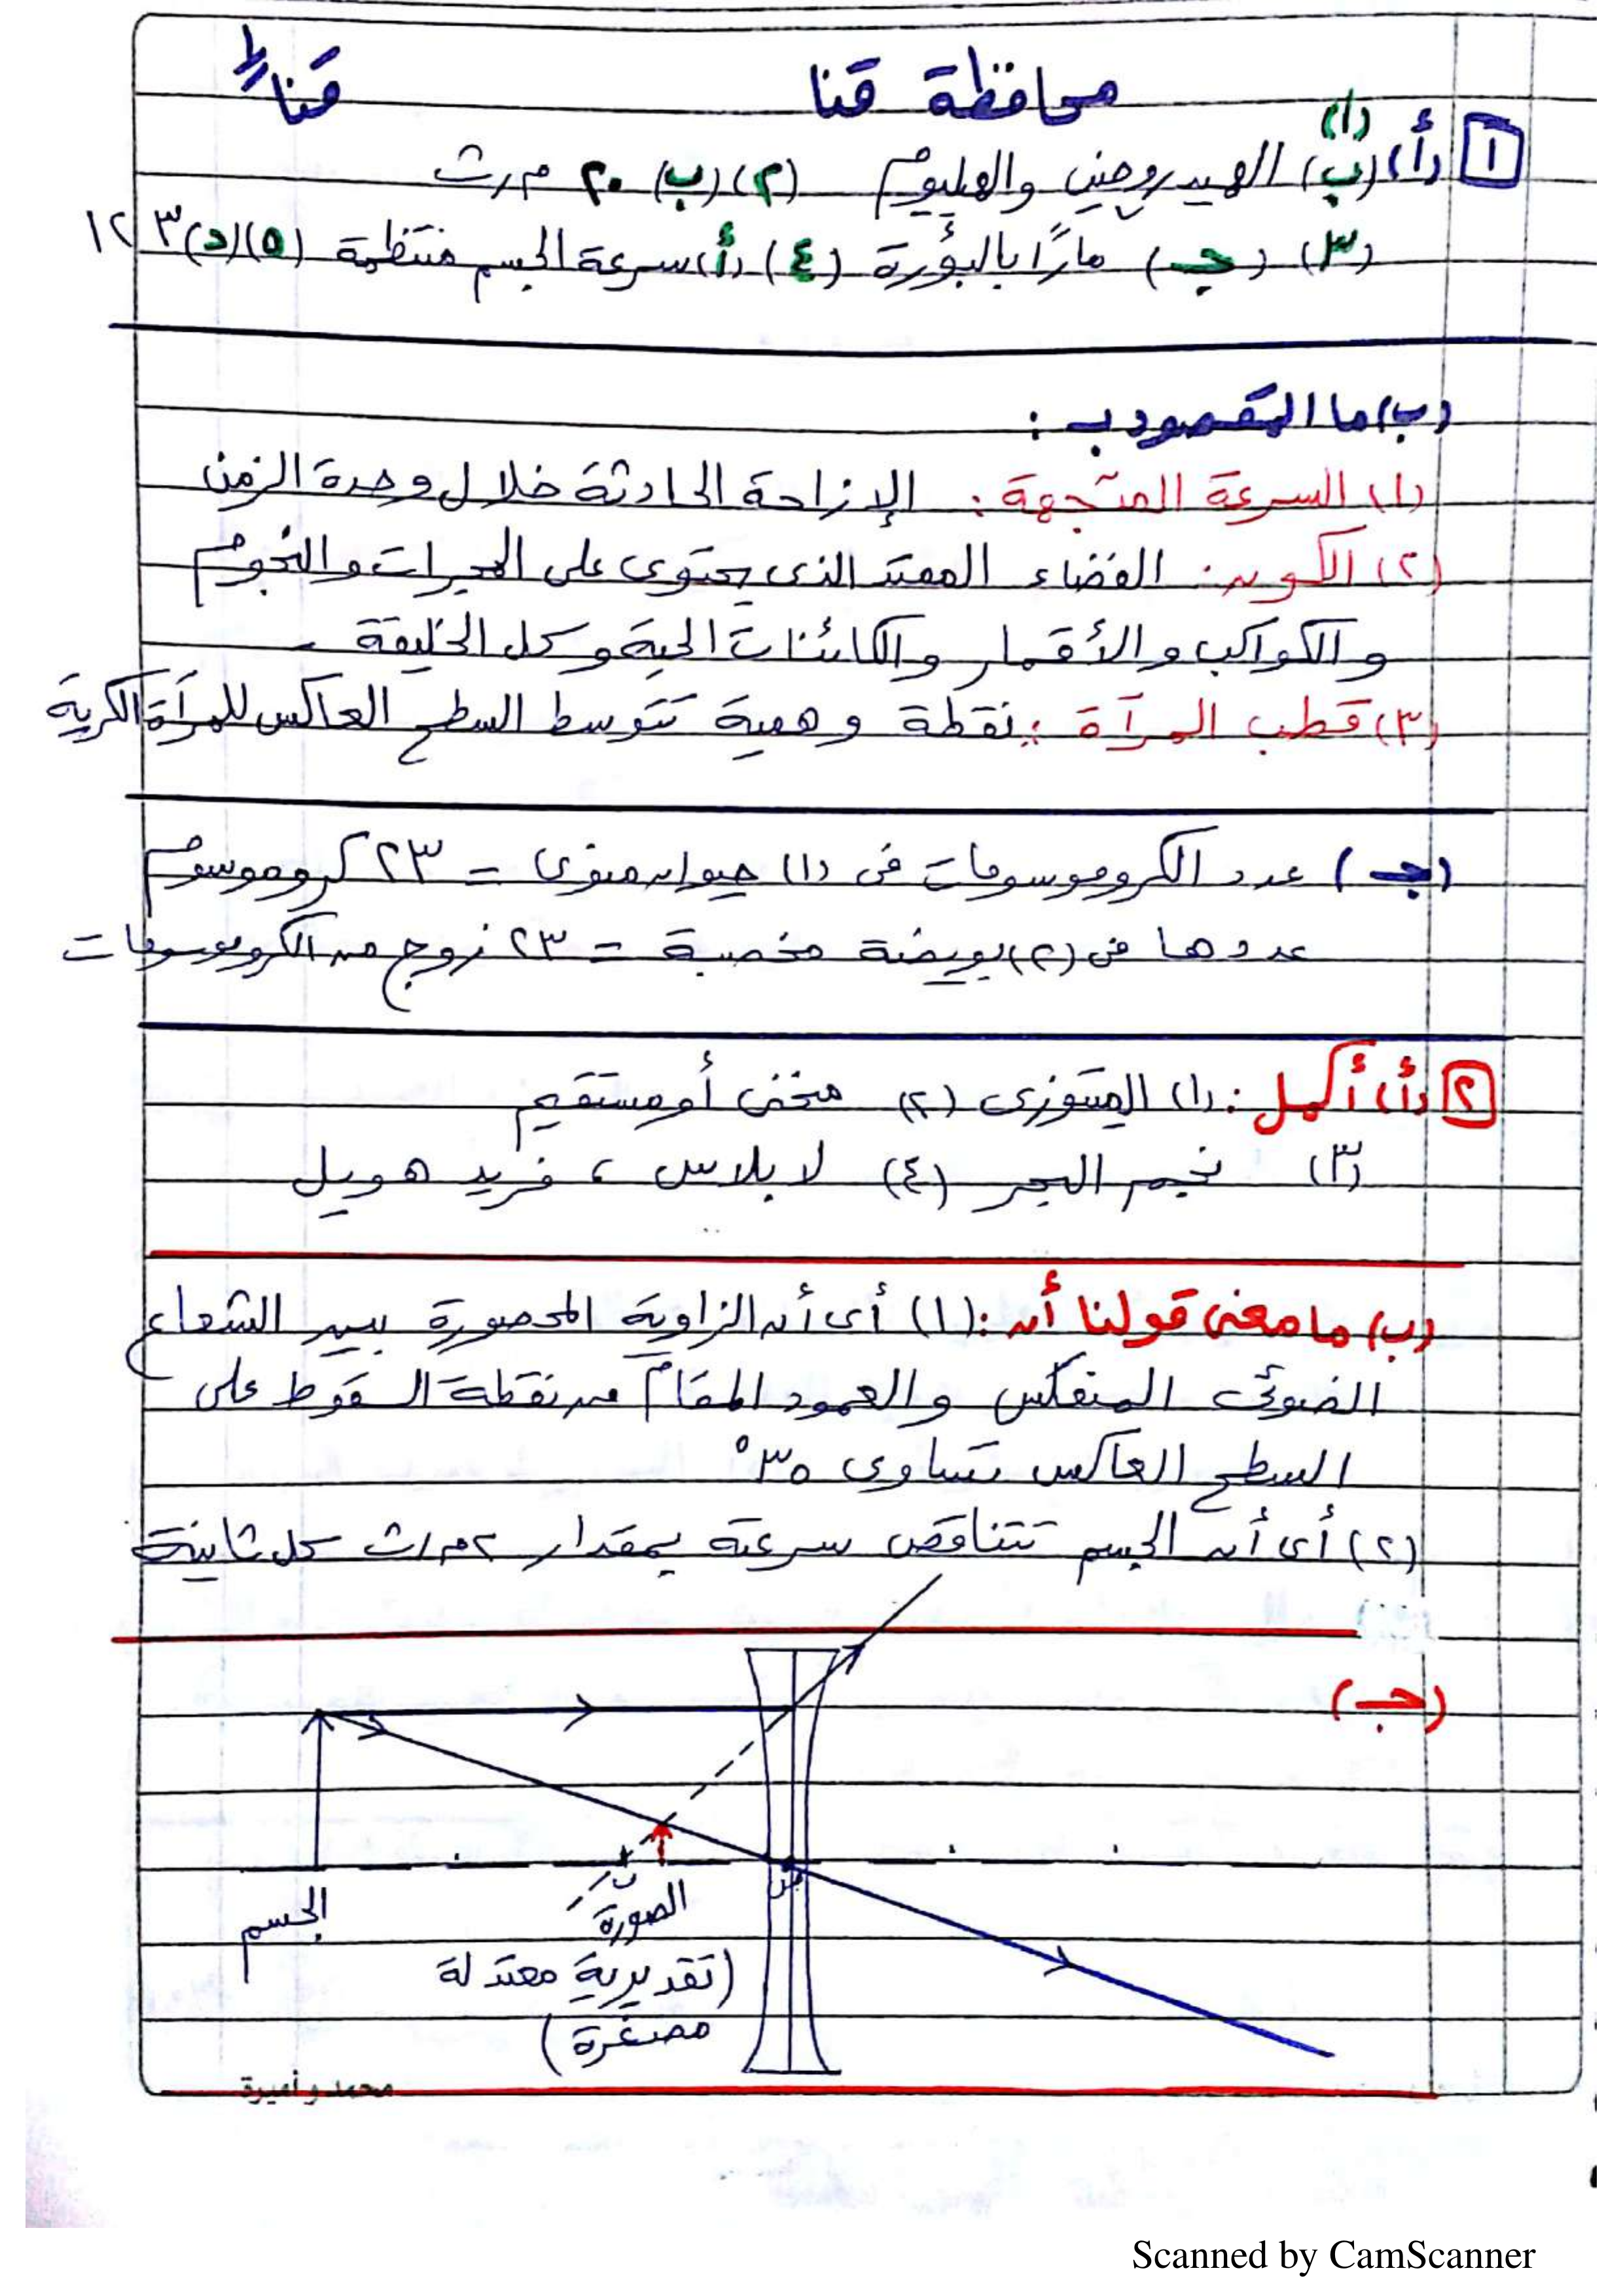 محافظة قنا
قنا
١ (أ) (١) (ب) الهيدروجين والهليوم (٢) (ب) ٢٠ م/ث
(٣) (جـ) مارًا بالبؤرة (٤) (أ) سرعة الجسم منتظمة (٥) (د) ١٢٣
(ب) ما المقصود بـ :
(١) السرعة المتجهة : الإزاحة الحادثة خلال وحدة الزمن
(٢) الكون : الفضاء الممتد الذى يحتوى على المجرات والنجوم
والكواكب والأقمار والكائنات الحية وكل الخليقة .
(٣) قطب المرآة : نقطة وهمية تتوسط السطح العاكس للمرآة الكرية
(جـ) عدد الكروموسومات فى (١) حيوان منوى = ٢٣ كروموسوم
عددها فى (٢) بويضة مخصبة = ٢٣ زوج من الكروموسومات
٢ (أ) أكمل : (١) الميتوزى (٢) منحنى أو مستقيم
(٣) نجم البحر (٤) لابلاس ، فريد هويل
(ب) ما معنى قولنا أن : (١) أى أن الزاوية المحصورة بين الشعاع
الضوئى المنعكس والعمود المقام من نقطة السقوط على
السطح العاكس تساوى ٣٥°
(٢) أى أن الجسم تتناقص سرعته بمقدار ٢ م/ث كل ثانية
(جـ)
ب
الجسم
الصورة
(تقديرية معتدلة
مصغرة)
محمد و أميرة
Scanned by CamScanner